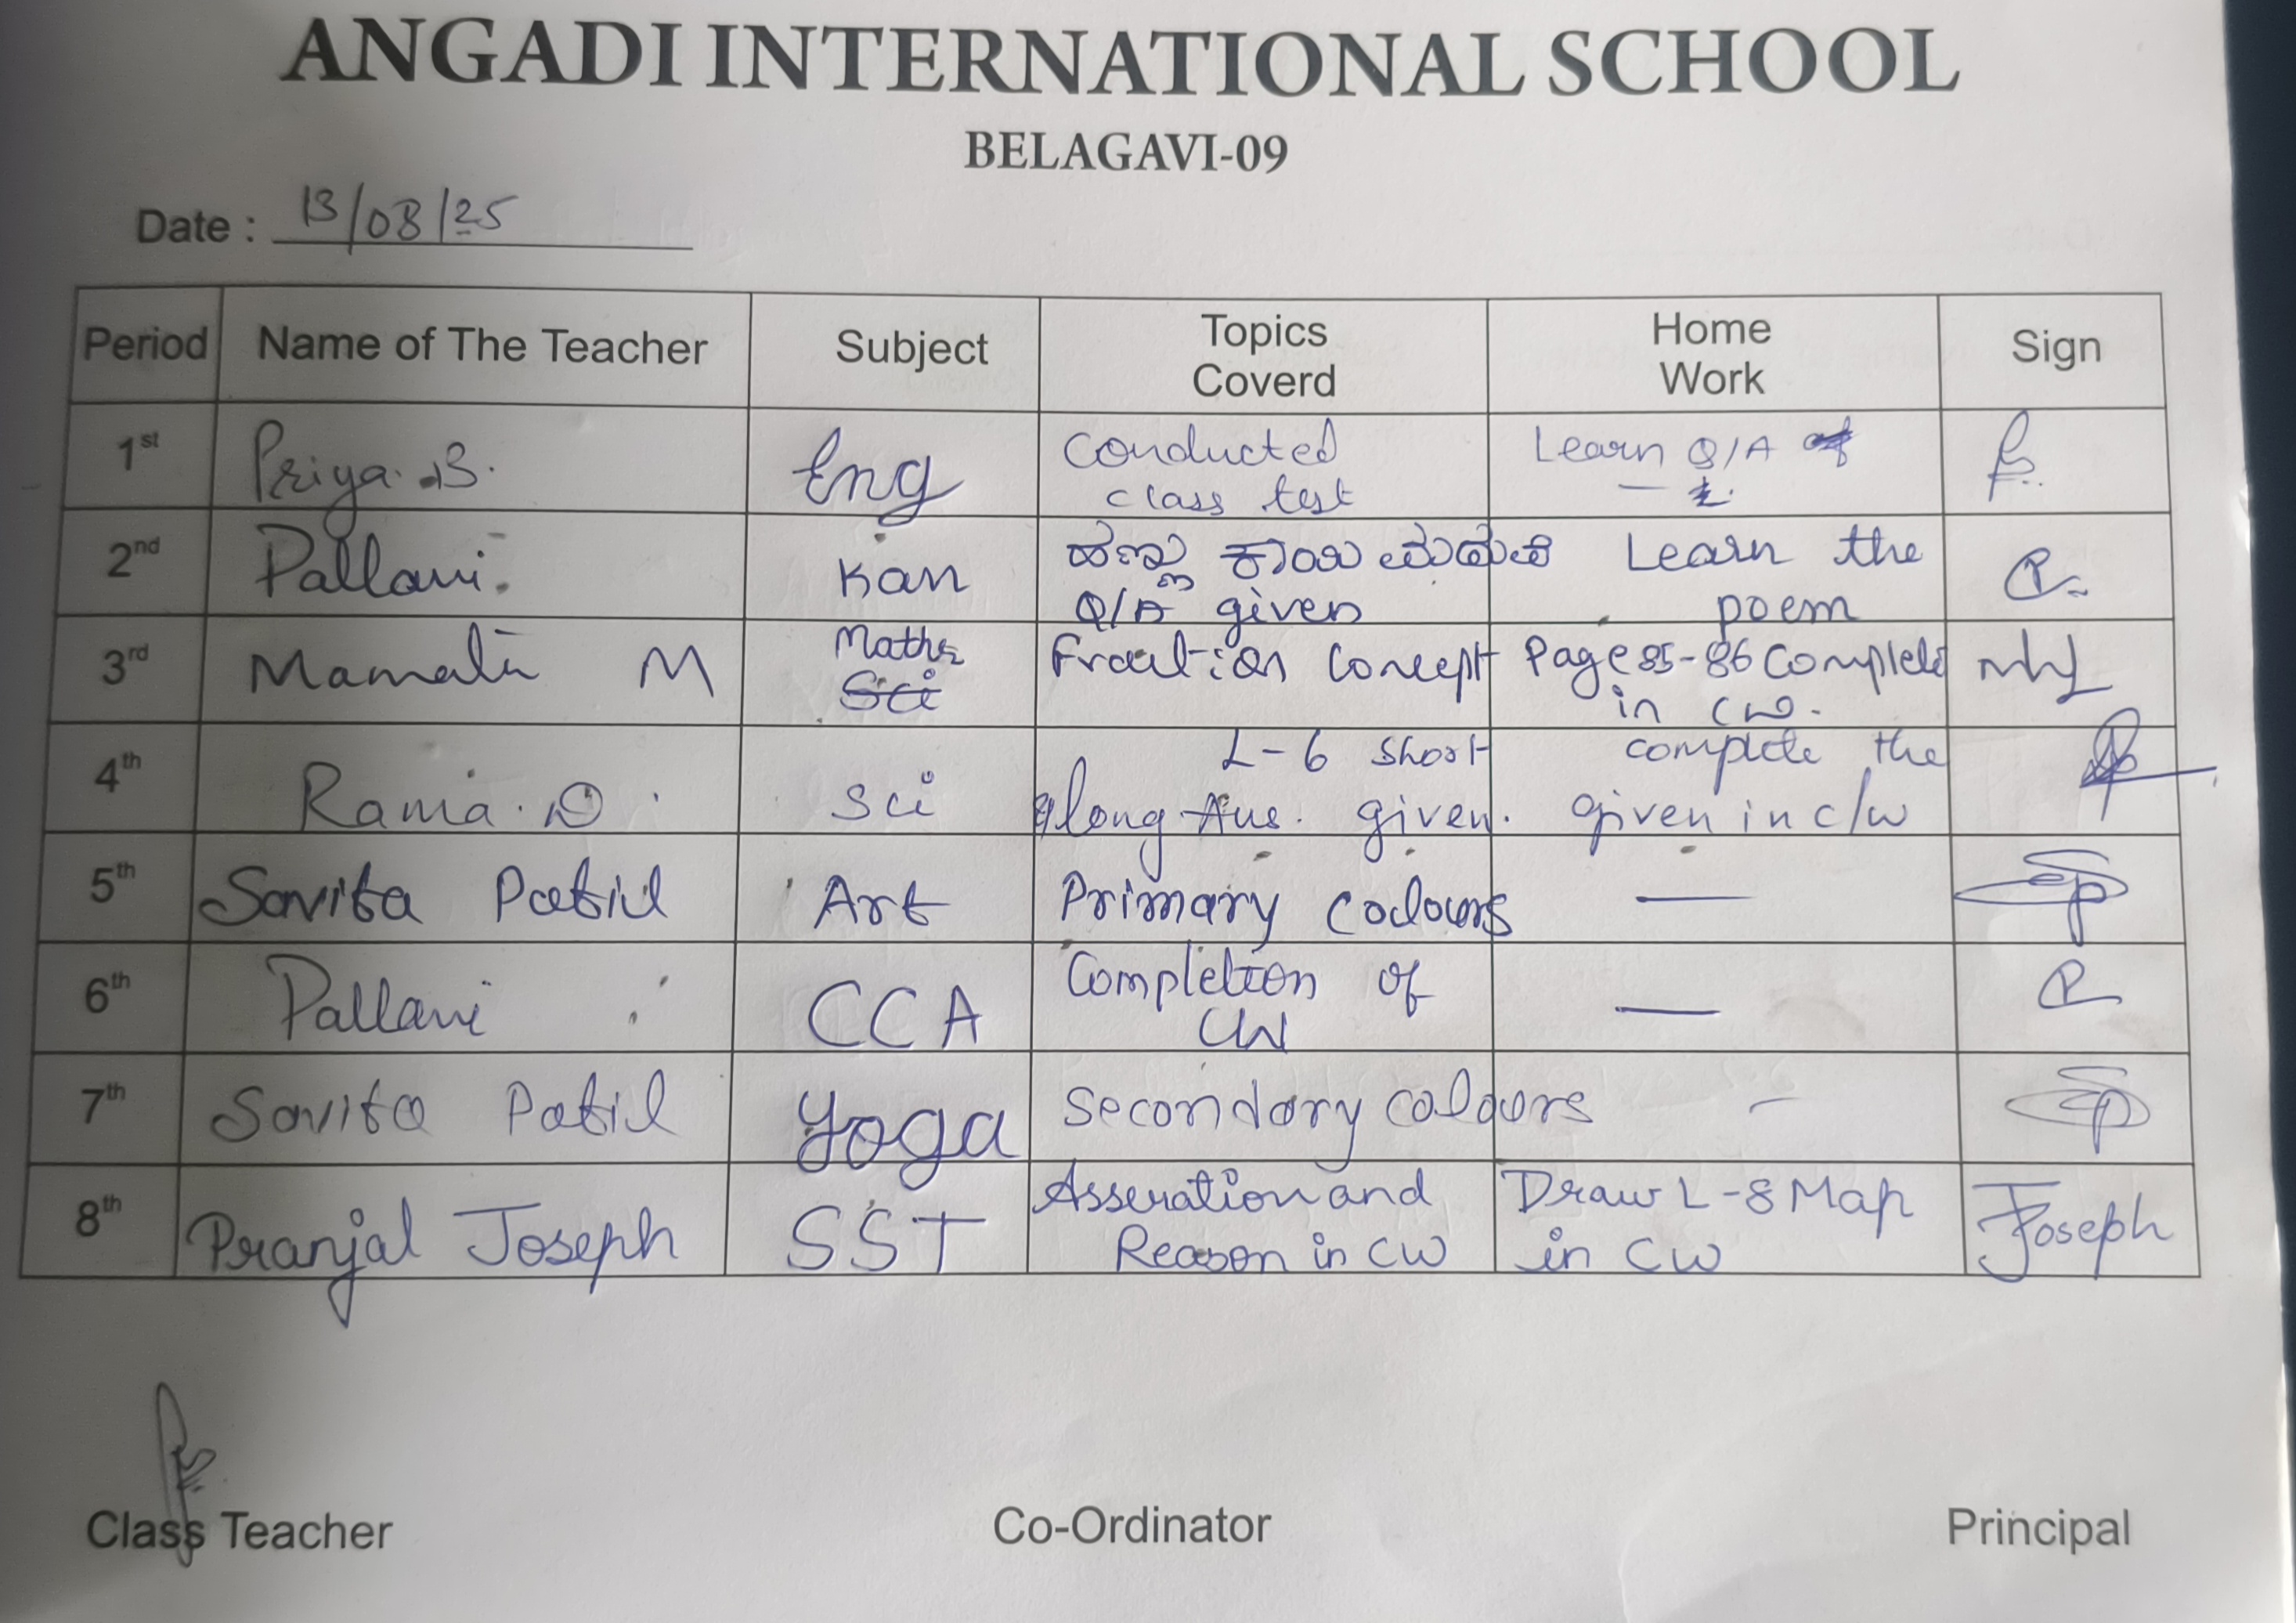 ANGADI INTERNATIONAL SCHOOL
BELAGAVI-09
Date : 13/08/25
Period Name of The Teacher Subject Topics Coverd Home Work Sign
1st Priya. B. Eng Conducted class test Learn Q/A
2nd Pallavi. Kan ಹಣ್ಣು ಕಾಯಿ ಮದುವೆ Q/A given Learn the poem
3rd Mamata M Maths Sci Fraction Concept Page 85-86 Complete in CW.
4th Rama. D. Sci L-6 Short & long Ans. given. complete the given in c/w
5th Savita Patil Art Primary Colours —
6th Pallavi CCA Completion of CW —
7th Savita Patil Yoga Secondary colours -
8th Pranjal Joseph SST Asseration and Reason in CW Draw L-8 Map in CW Joseph
Class Teacher Co-Ordinator Principal